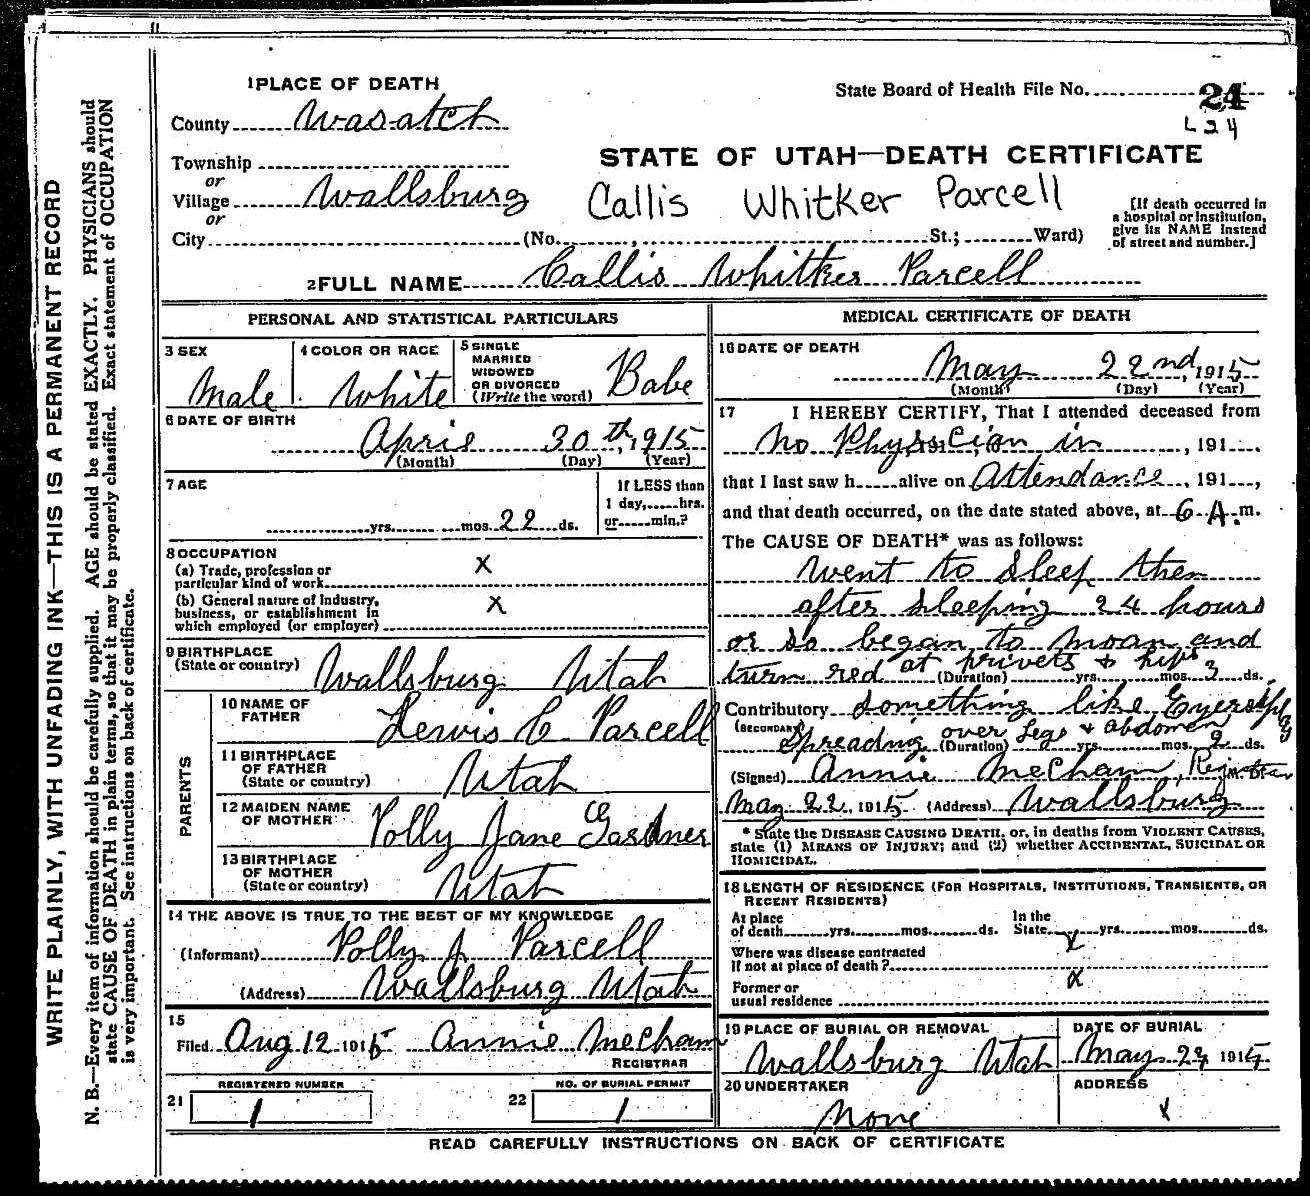 1 PLACE OF DEATH
State Board of Health File No. 24
L 24
County Wasatch
Township
STATE OF UTAH—DEATH CERTIFICATE
or
Village Wallsburg
Callis Whitker Parcell
or
City (No. St.; Ward)
[If death occurred in
a hospital or institution,
give its NAME instead
of street and number.]
2 FULL NAME Callis Whitker Parcell
PERSONAL AND STATISTICAL PARTICULARS
3 SEX
Male
4 COLOR OR RACE
White
5 SINGLE
MARRIED
WIDOWED
OR DIVORCED
(Write the word)
Babe
6 DATE OF BIRTH
April 30th, 1915
(Month) (Day) (Year)
7 AGE
yrs. mos. 22 ds.
If LESS than
1 day, hrs.
or min.?
8 OCCUPATION
(a) Trade, profession or
particular kind of work X
(b) General nature of industry,
business, or establishment in
which employed (or employer) X
9 BIRTHPLACE
(State or country) Wallsburg Utah
PARENTS
10 NAME OF
FATHER Lewis C Parcell
11 BIRTHPLACE
OF FATHER
(State or country) Utah
12 MAIDEN NAME
OF MOTHER Polly Jane Gardner
13 BIRTHPLACE
OF MOTHER
(State or country) Utah
14 THE ABOVE IS TRUE TO THE BEST OF MY KNOWLEDGE
(Informant) Polly J Parcell
(Address) Wallsburg Utah
15
Filed Aug 12 1915 Annie Mecham
REGISTRAR
REGISTERED NUMBER
21 1
NO. OF BURIAL PERMIT
22 1
MEDICAL CERTIFICATE OF DEATH
16 DATE OF DEATH
May 22nd, 1915
(Month) (Day) (Year)
17 I HEREBY CERTIFY, That I attended deceased from
No Physician in , 191 .
that I last saw h alive on Attendance , 191 ,
and that death occurred, on the date stated above, at 6 A.m.
The CAUSE OF DEATH* was as follows:
went to sleep then
after sleeping 24 hours
or so began to moan and
turn red at privets & hips
(Duration) yrs. mos. 3 ds.
Contributory something like
(SECONDARY) Spreading over Legs & abdomen
(Duration) yrs. mos. 2 ds.
(Signed) Annie Mecham,
May 22 1915 (Address) Wallsburg
* State the DISEASE CAUSING DEATH, or, in deaths from VIOLENT CAUSES,
state (1) MEANS OF INJURY; and (2) whether ACCIDENTAL, SUICIDAL OR
HOMICIDAL.
18 LENGTH OF RESIDENCE (FOR HOSPITALS, INSTITUTIONS, TRANSIENTS, OR
RECENT RESIDENTS)
At place
of death yrs. mos. ds.
In the
State yrs. mos. ds.
Where was disease contracted
If not at place of death? X
Former or
usual residence X
19 PLACE OF BURIAL OR REMOVAL
Wallsburg Utah
DATE OF BURIAL
May 1915
20 UNDERTAKER
None
ADDRESS
X
READ CAREFULLY INSTRUCTIONS ON BACK OF CERTIFICATE
WRITE PLAINLY, WITH UNFADING INK—THIS IS A PERMANENT RECORD
N. B.—Every item of information should be carefully supplied. AGE should be stated EXACTLY. PHYSICIANS should
state CAUSE OF DEATH in plain terms, so that it may be properly classified. Exact statement of OCCUPATION
is very important. See instructions on back of certificate.